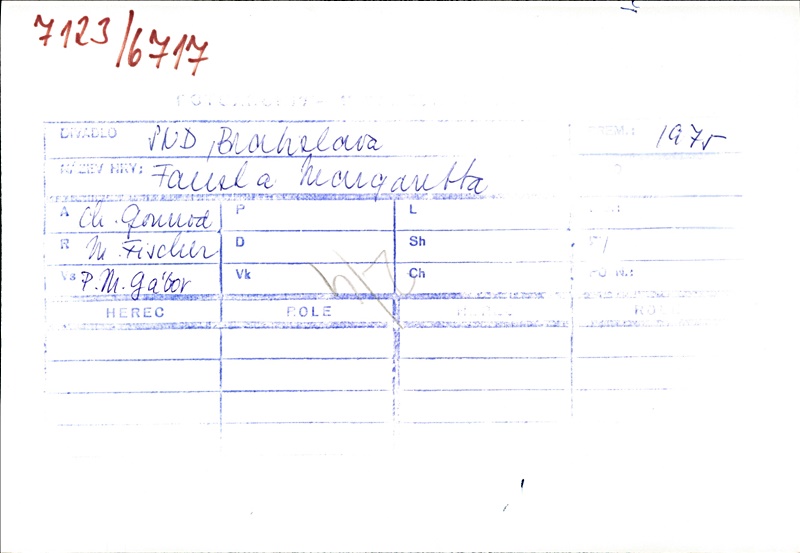 7123/6717
DIVADLO SND, Bratislava 1975
NÁZEV HRY: Faust a Margaretta
A Ch. Gounod P L
R M. Fischer D Sh
Vs P. M. Gábor Vk Ch
HEREC ROLE